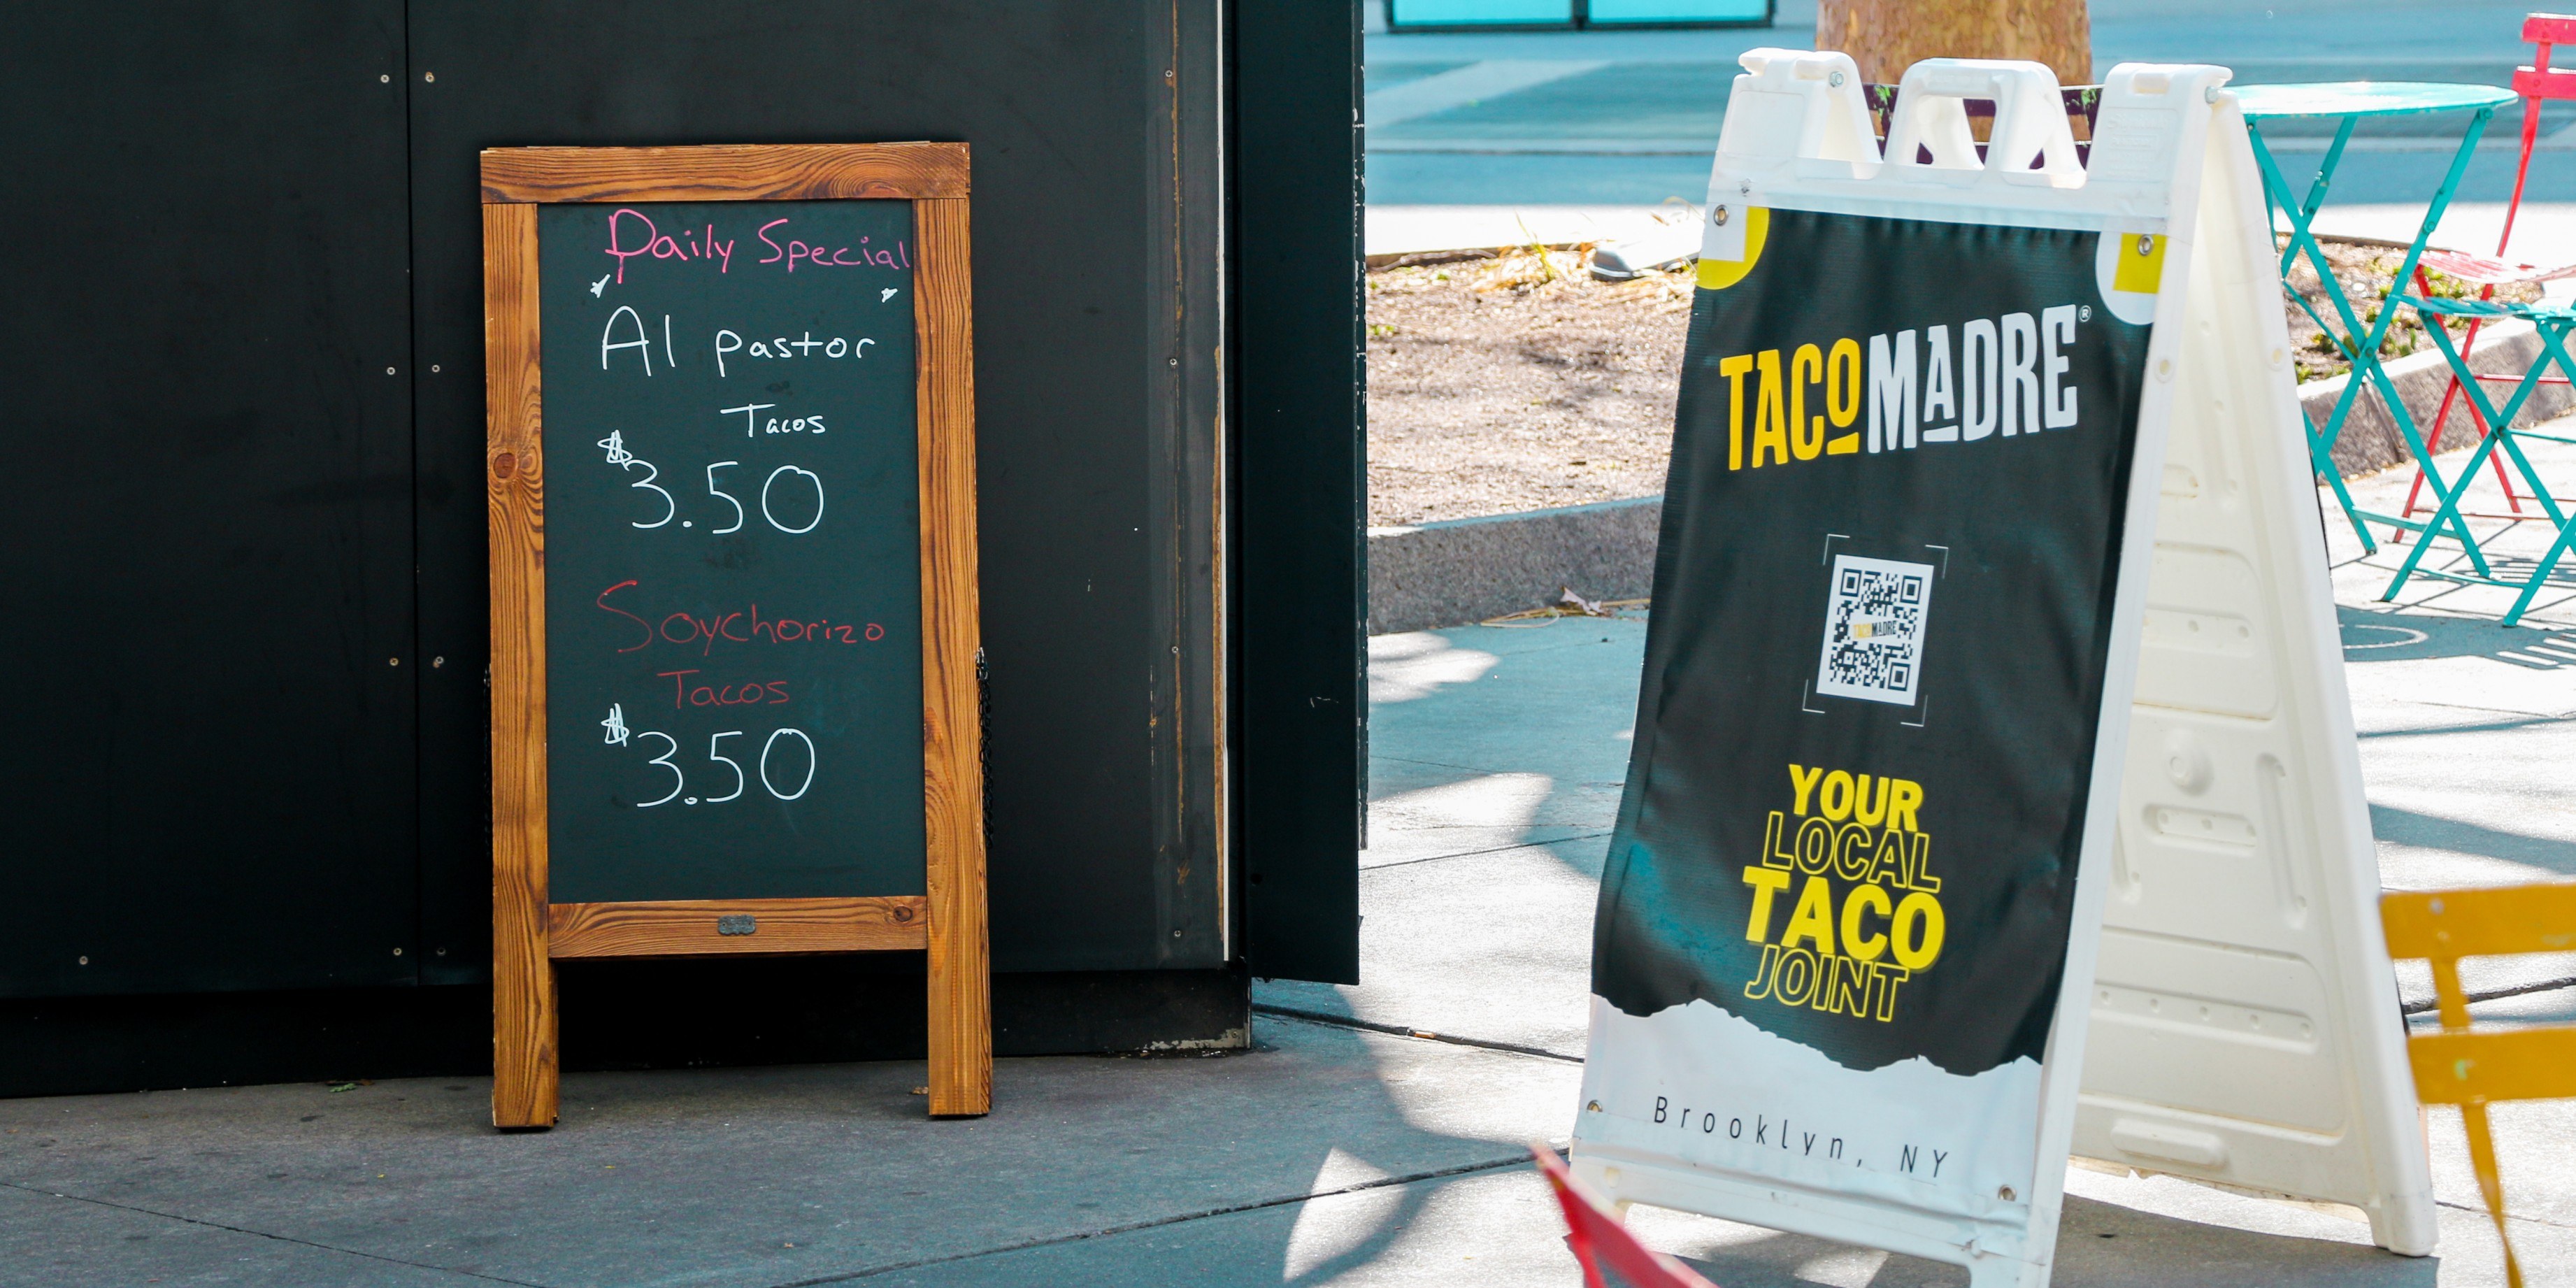 Daily Special
Al pastor
Tacos
$3.50
Soychorizo
Tacos
$3.50
TACOMADRE®
TACOMADRE
YOUR
LOCAL
TACO
JOINT
Brooklyn, NY